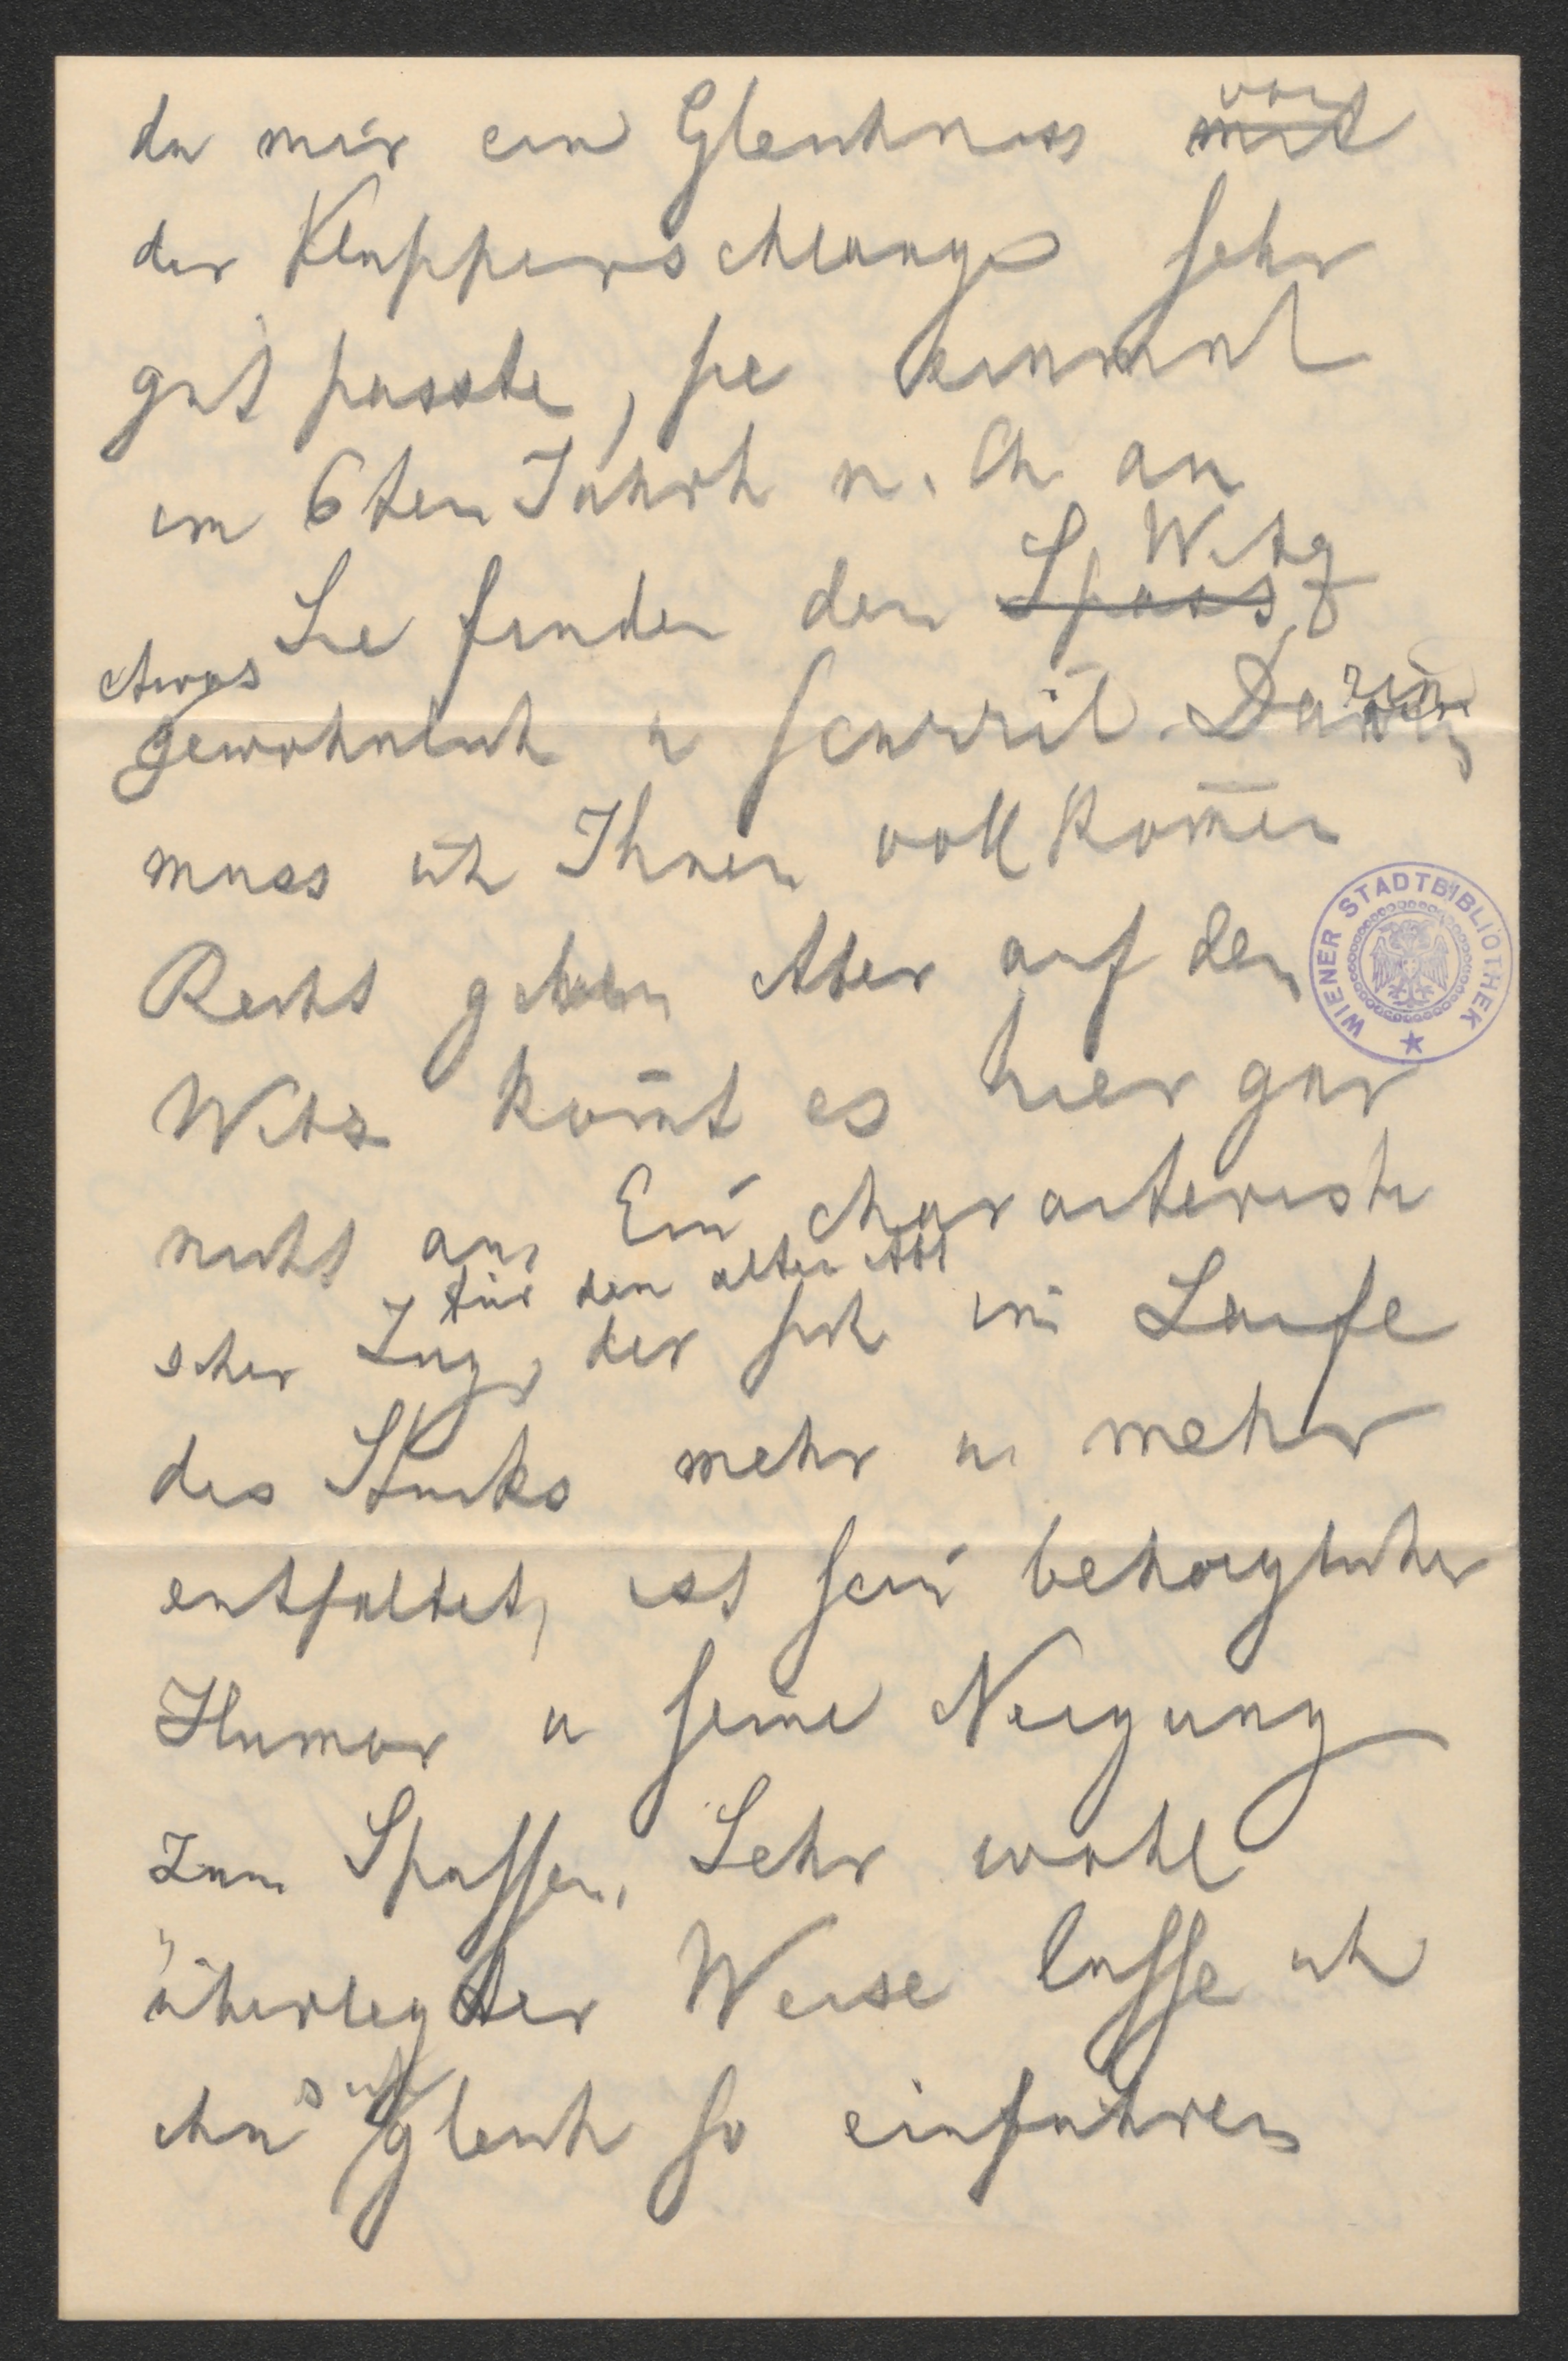 da mir ein Gleichniss mit von
der Klapperschlange sehr
gut passte, sie einmal
im 6ten Jahrh n. Ch an
Sie finden den Spass Witz
etwas
gewöhnlich u scurril. Darin
muss ich Ihnen vollkom̄en
Recht geben Aber auf den
Witz kom̄t es hier gar
nicht an. Ein characteristi
scher Zug für den alten Abt, der sich im Laufe
des Stücks mehr u. mehr
entfaltet, ist sein behaglicher
Humor u seine Neigung
zum Spassen. Sehr wohl
überlegter Weise lasse ich
ihn sich gleich so einführen
WIENER STADTBIBLIOTHEK